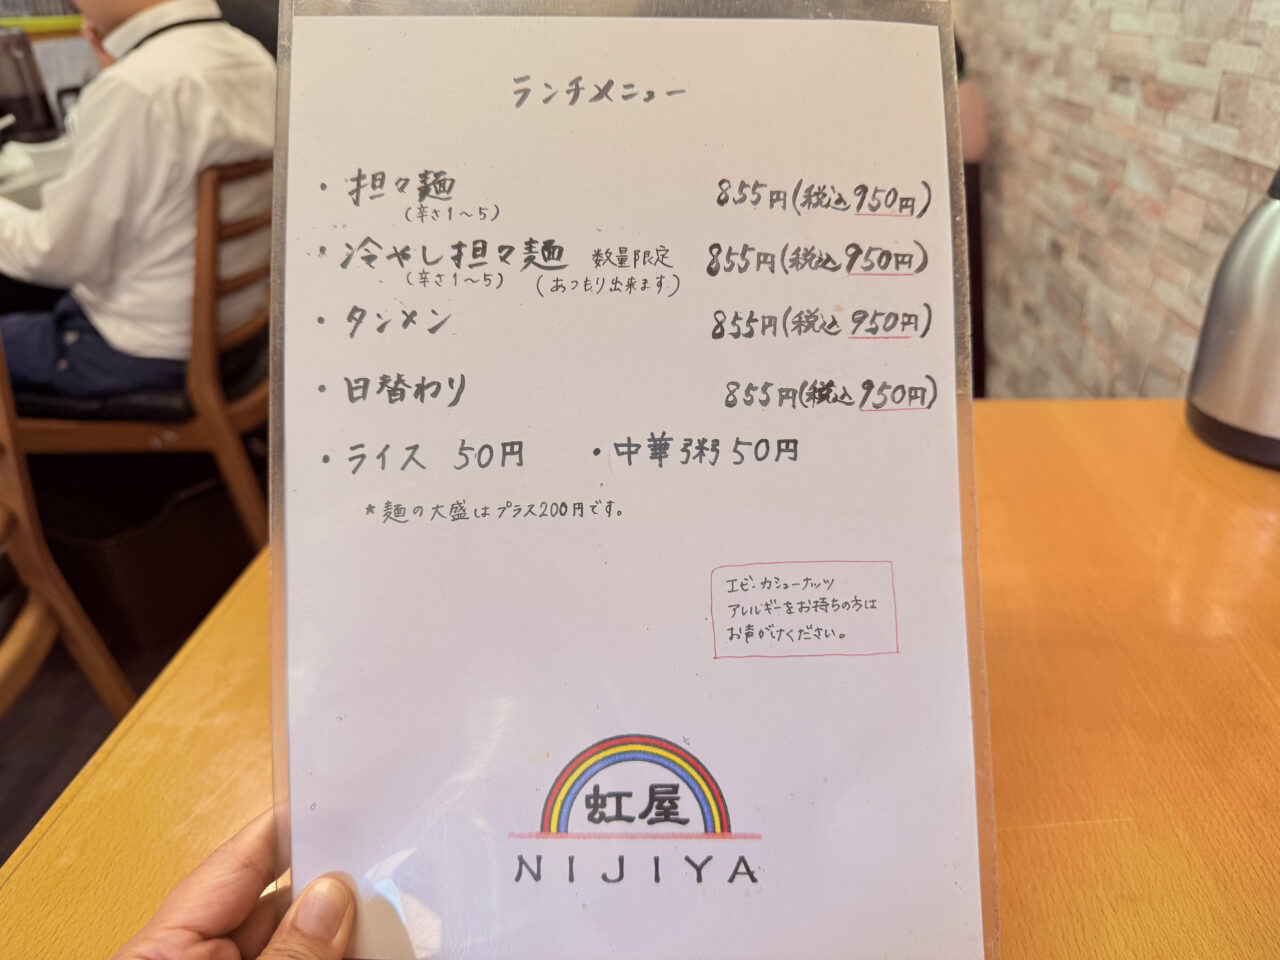 ランチメニュー
・担々麺 855円(税込950円)
(辛さ1〜5)
・冷やし担々麺 数量限定 855円(税込950円)
(辛さ1〜5) (あつもり出来ます)
・タンメン 855円(税込950円)
・日替わり 855円(税込950円)
・ライス 50円 ・中華粥 50円
*麺の大盛はプラス200円です。
エビ・カシューナッツ
アレルギーをお持ちの方は
お声がけください。
虹屋
NIJIYA